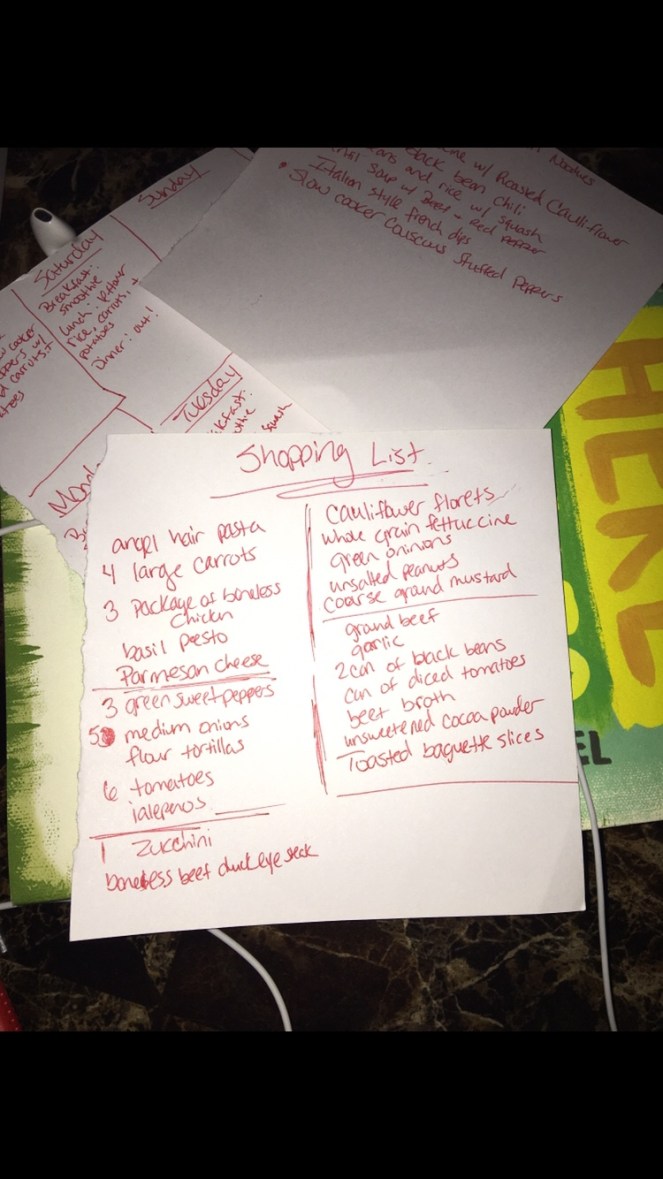 Noodles
w/ Roasted Cauliflower
black bean chili
and rice w/ squash
soup w/ Beef - Red Pepper
Italian style french dips
• Slow cooker Couscous Stuffed Peppers
Sunday
Saturday
Breakfast:
smoothie
Lunch: leftover
rice, carrots, +
potatoes
Dinner: out!
Tuesday
squash
HERE
EL
Shopping List
angel hair pasta
4 large carrots
3 package of boneless
Chicken
basil pesto
Parmesan cheese
3 green sweet peppers
5 medium onions
flour tortillas
6 tomatoes
jalepenos
1 Zucchini
boneless beef chuck eye
Cauliflower florets
whole grain fettuccine
green onions
unsalted peanuts
coarse grand mustard
grand beef
garlic
2 can of black beans
can of diced tomatoes
beef broth
unsweetened cocoa powder
Toasted baguette slices